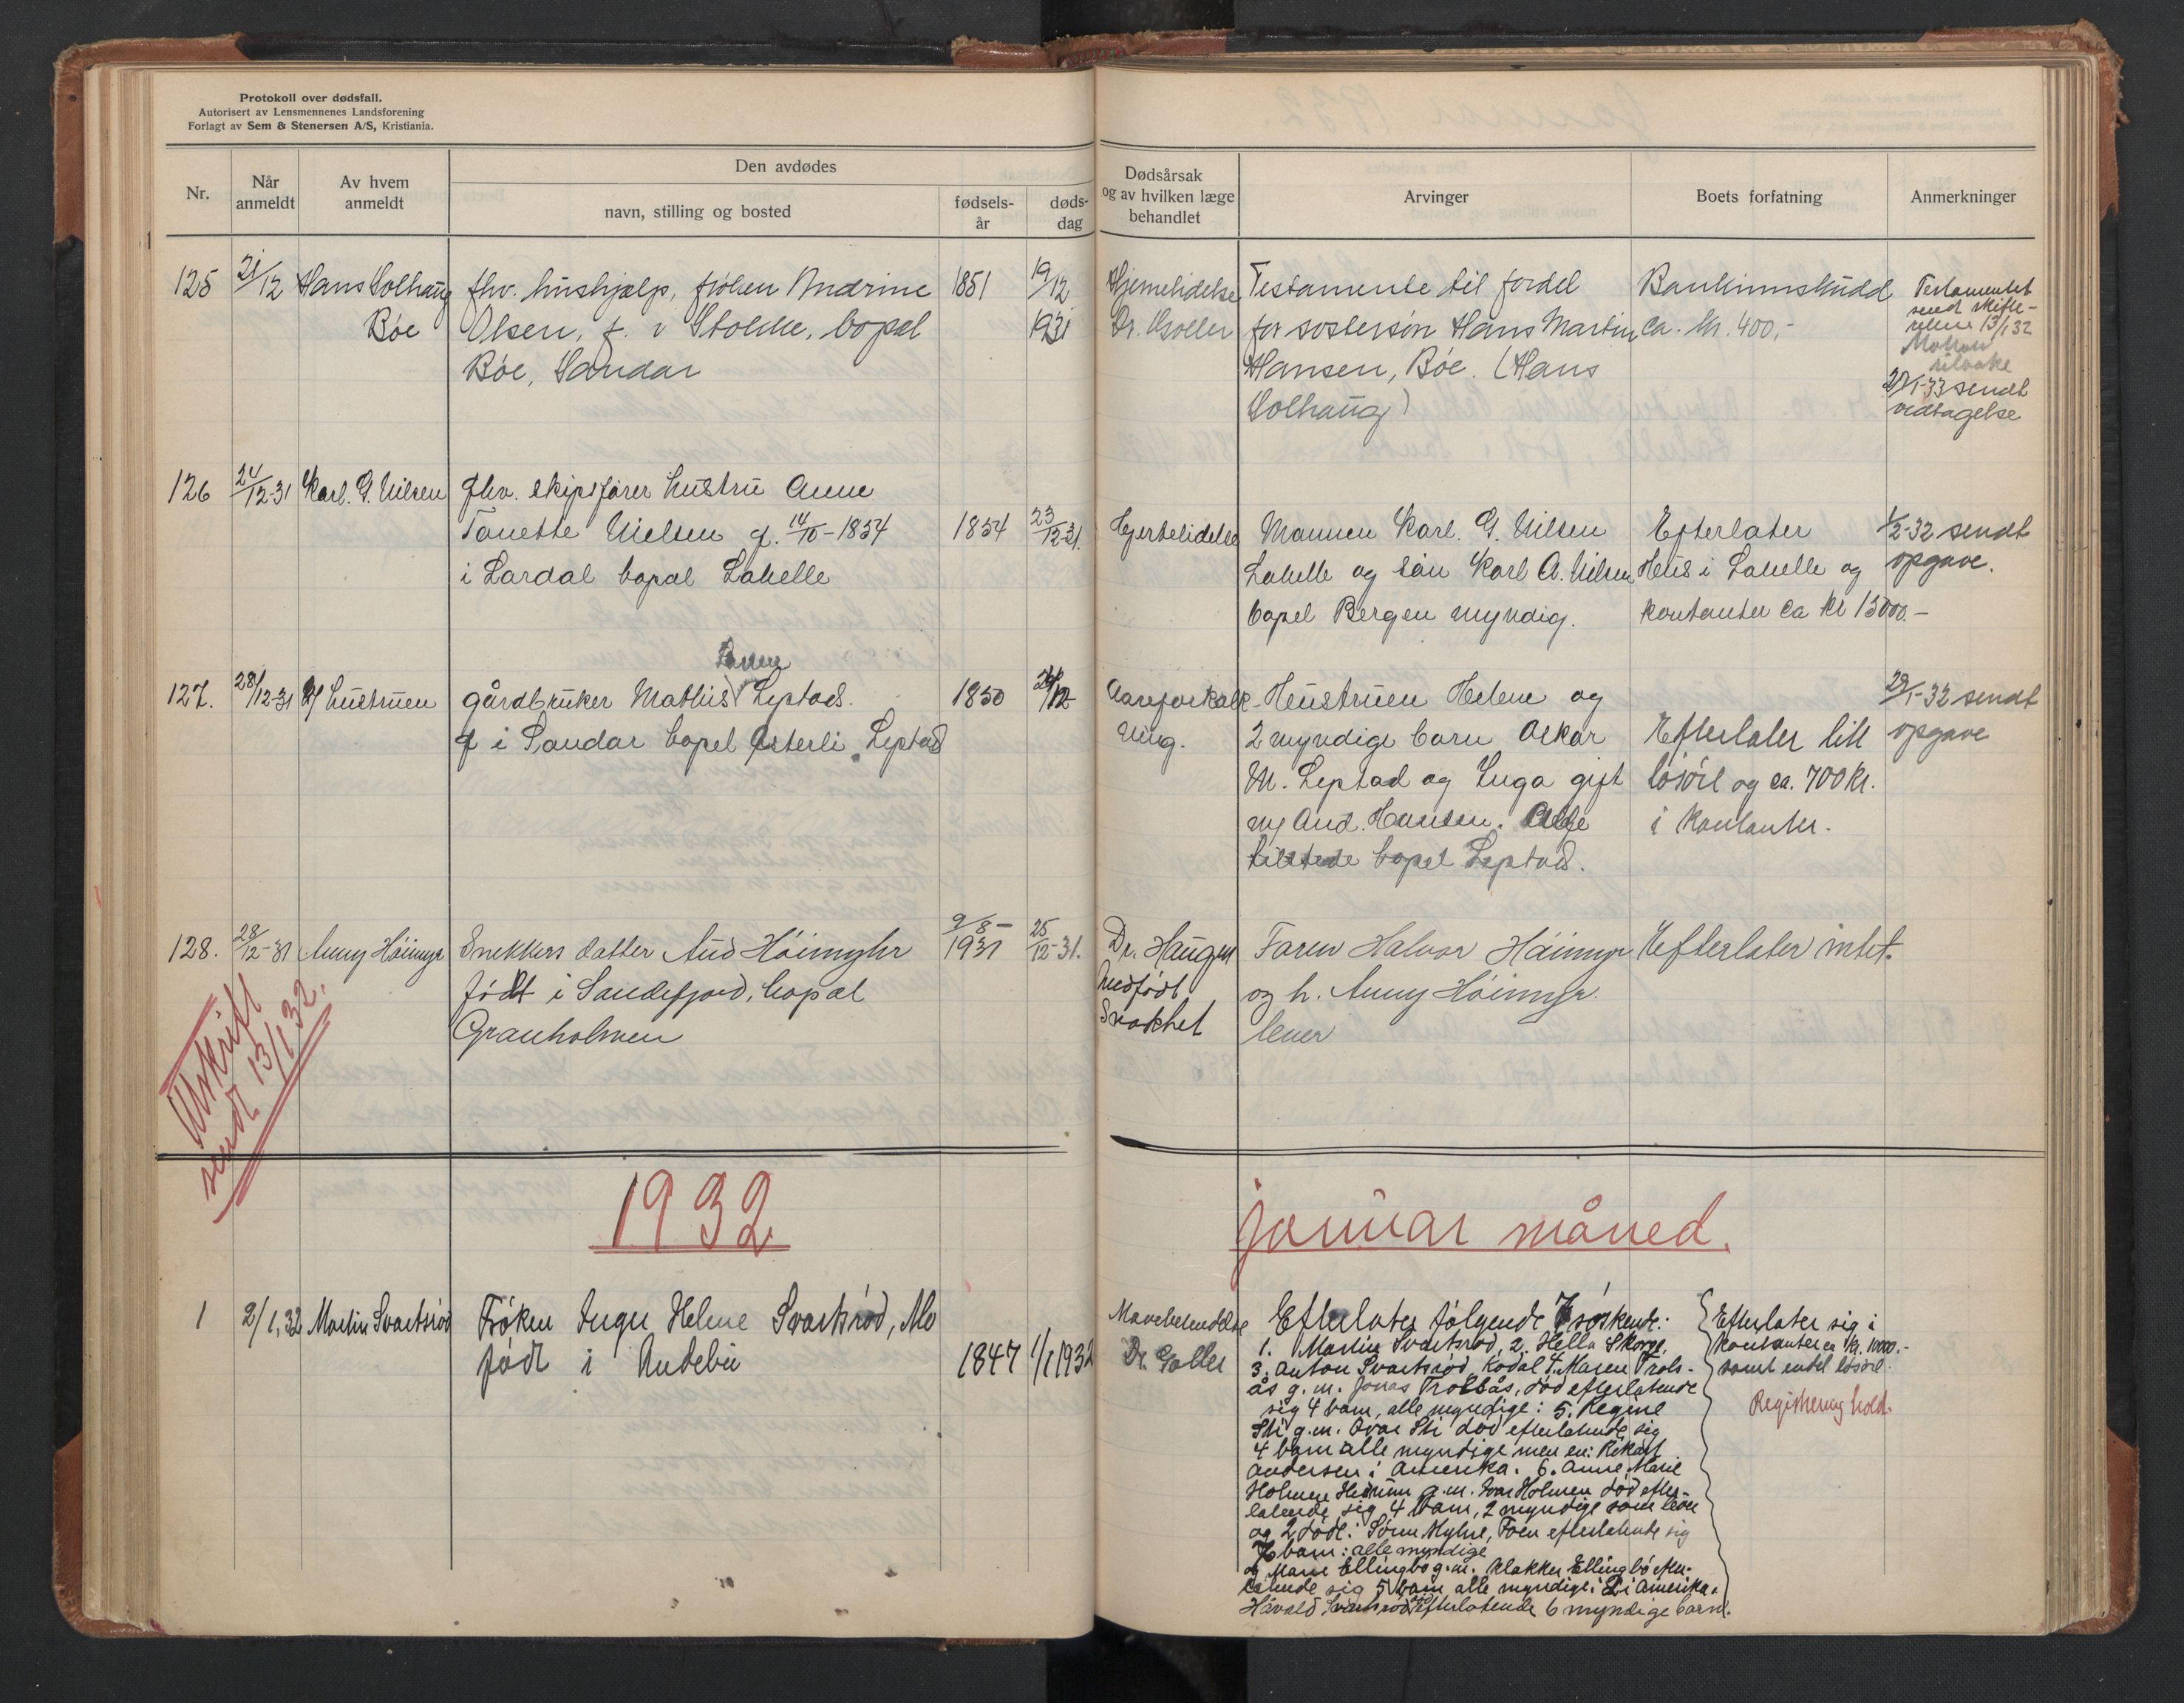 Protokoll over dødsfall.
Autorisert av Lensmennenes Landsforening
Forlagt av Sem & Stenersen A/S, Kristiania.
Nr.
Når anmeldt
Av hvem anmeldt
Den avdødes
navn, stilling og bosted
fødsels-år
døds-dag
Dødsårsak og av hvilken læge behandlet
Arvinger
Boets forfatning
Anmerkninger
125
21/12
Hans Solhaug
Bøe
fhv. hushjælp, frøken Andrine
Olsen, f. i Stokke, bopæl
Bøe, Sandar
1851
19/12
1931
Hjernelidelse
Dr. Holler
Testamente til fordel
for søstersøn Hans Martin
Hansen, Bøe. (Hans
Solhaug)
Bankinnskudd
ca. kr. 400,-
Testamentet
sendt skifte-
retten 13/1 32
tilbake
21/1-33 sendt
vedtagelse
126
24/12-31
Karl. G. Nilsen
fhv. skipsfører hustru Anne
Tonette Nielsen f. 14/10-1854
i Lardal bopæl Lahelle
1854
23/12-31.
Hjertelidelse
Mannen Karl. G. Nilsen
Lahelle og sön Karl A. Nilsen
bopel Bergen myndig.
Efterlater
Hus i Lahelle og
kontanter ca kr 13000.-
1/2-32 sendt
opgave.
127.
28/12-31
v/ hustruen
gårdbruker Mathis Leptad.
f i Sandar bopel Østerli Leptad
1850
Aareforkalk-
ning.
Hustruen Helene og
2 myndige barn Oskar
M. Leptad og Inga gift
m/ And. Hansen. Alle
tilstede bopel Leptad.
Efterlater litt
løsöre og ca. 700 kr.
i kontanter.
29/1-32 sendt
opgave
128.
28/12-31
Anny Höimyr
Snekkers datter Aud Höimyhr
født i Sandefjord, bopæl
Granholmen
9/8-
1931
25/12-31.
Dr. Haugen
Medfödt
Svakhet
Faren Halvor Höimyr
og h. Anny Höimyr
lever
Efterlater intet.
Utskrift
sendt 13/1 32.
1932
januar måned.
1
2/1,32
Martin Svartsrød
Frøken Inger Helene Svartsrød, Mo
født i Andebu
1847
1/1 1932
Maveblødelse
Dr. Holler
Efterlater følgende 7 søskende:
1. Martin Svartsrød, 2. Hella Skorge,
3. Anton Svartsrød, Kodal 4. Maren Trols-
ås g.m. Jonas Trolsås, død efterlatende
sig 4 barn, alle myndige: 5. Regine
Sti g.m. Ivar Sti død efterlatende sig
4 barn alle myndige men en: Rikard
Andersen i Amerika. 6. Anne Marie
Holmen Hedrum g.m. Ivar Holmen død efter-
latende sig 4 barn, 2 myndige som lever
og 2 døde: Sören Myhre, Foen efterlatende sig
7 barn: alle myndige
og Maren Ellingbø g.m. Klakken Ellingbø efter-
latende sig 5 barn alle myndige: 2 i Amerika.
Håvald Svartsrød efterlatende 6 myndige barn.
Efterlater sig i
kontanter ca kr. 1000.-
samt endel løsöre.
Registrering hold.